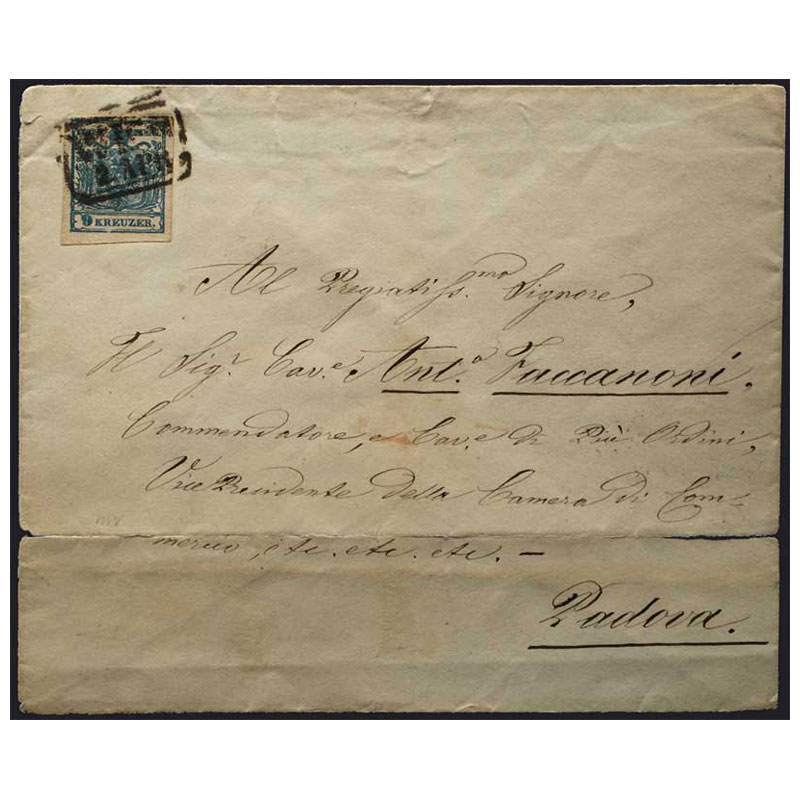 2. APR
9 KREUZER.
Al Pregiatiss.mo Signore,
Il Sigr. Cav.e Ant.o Fuccanoni,
Commendatore, e Cav.e di Più Ordini,
Vice Presidente della Camera di Com=
mercio, etc. etc. etc. –
Padova.